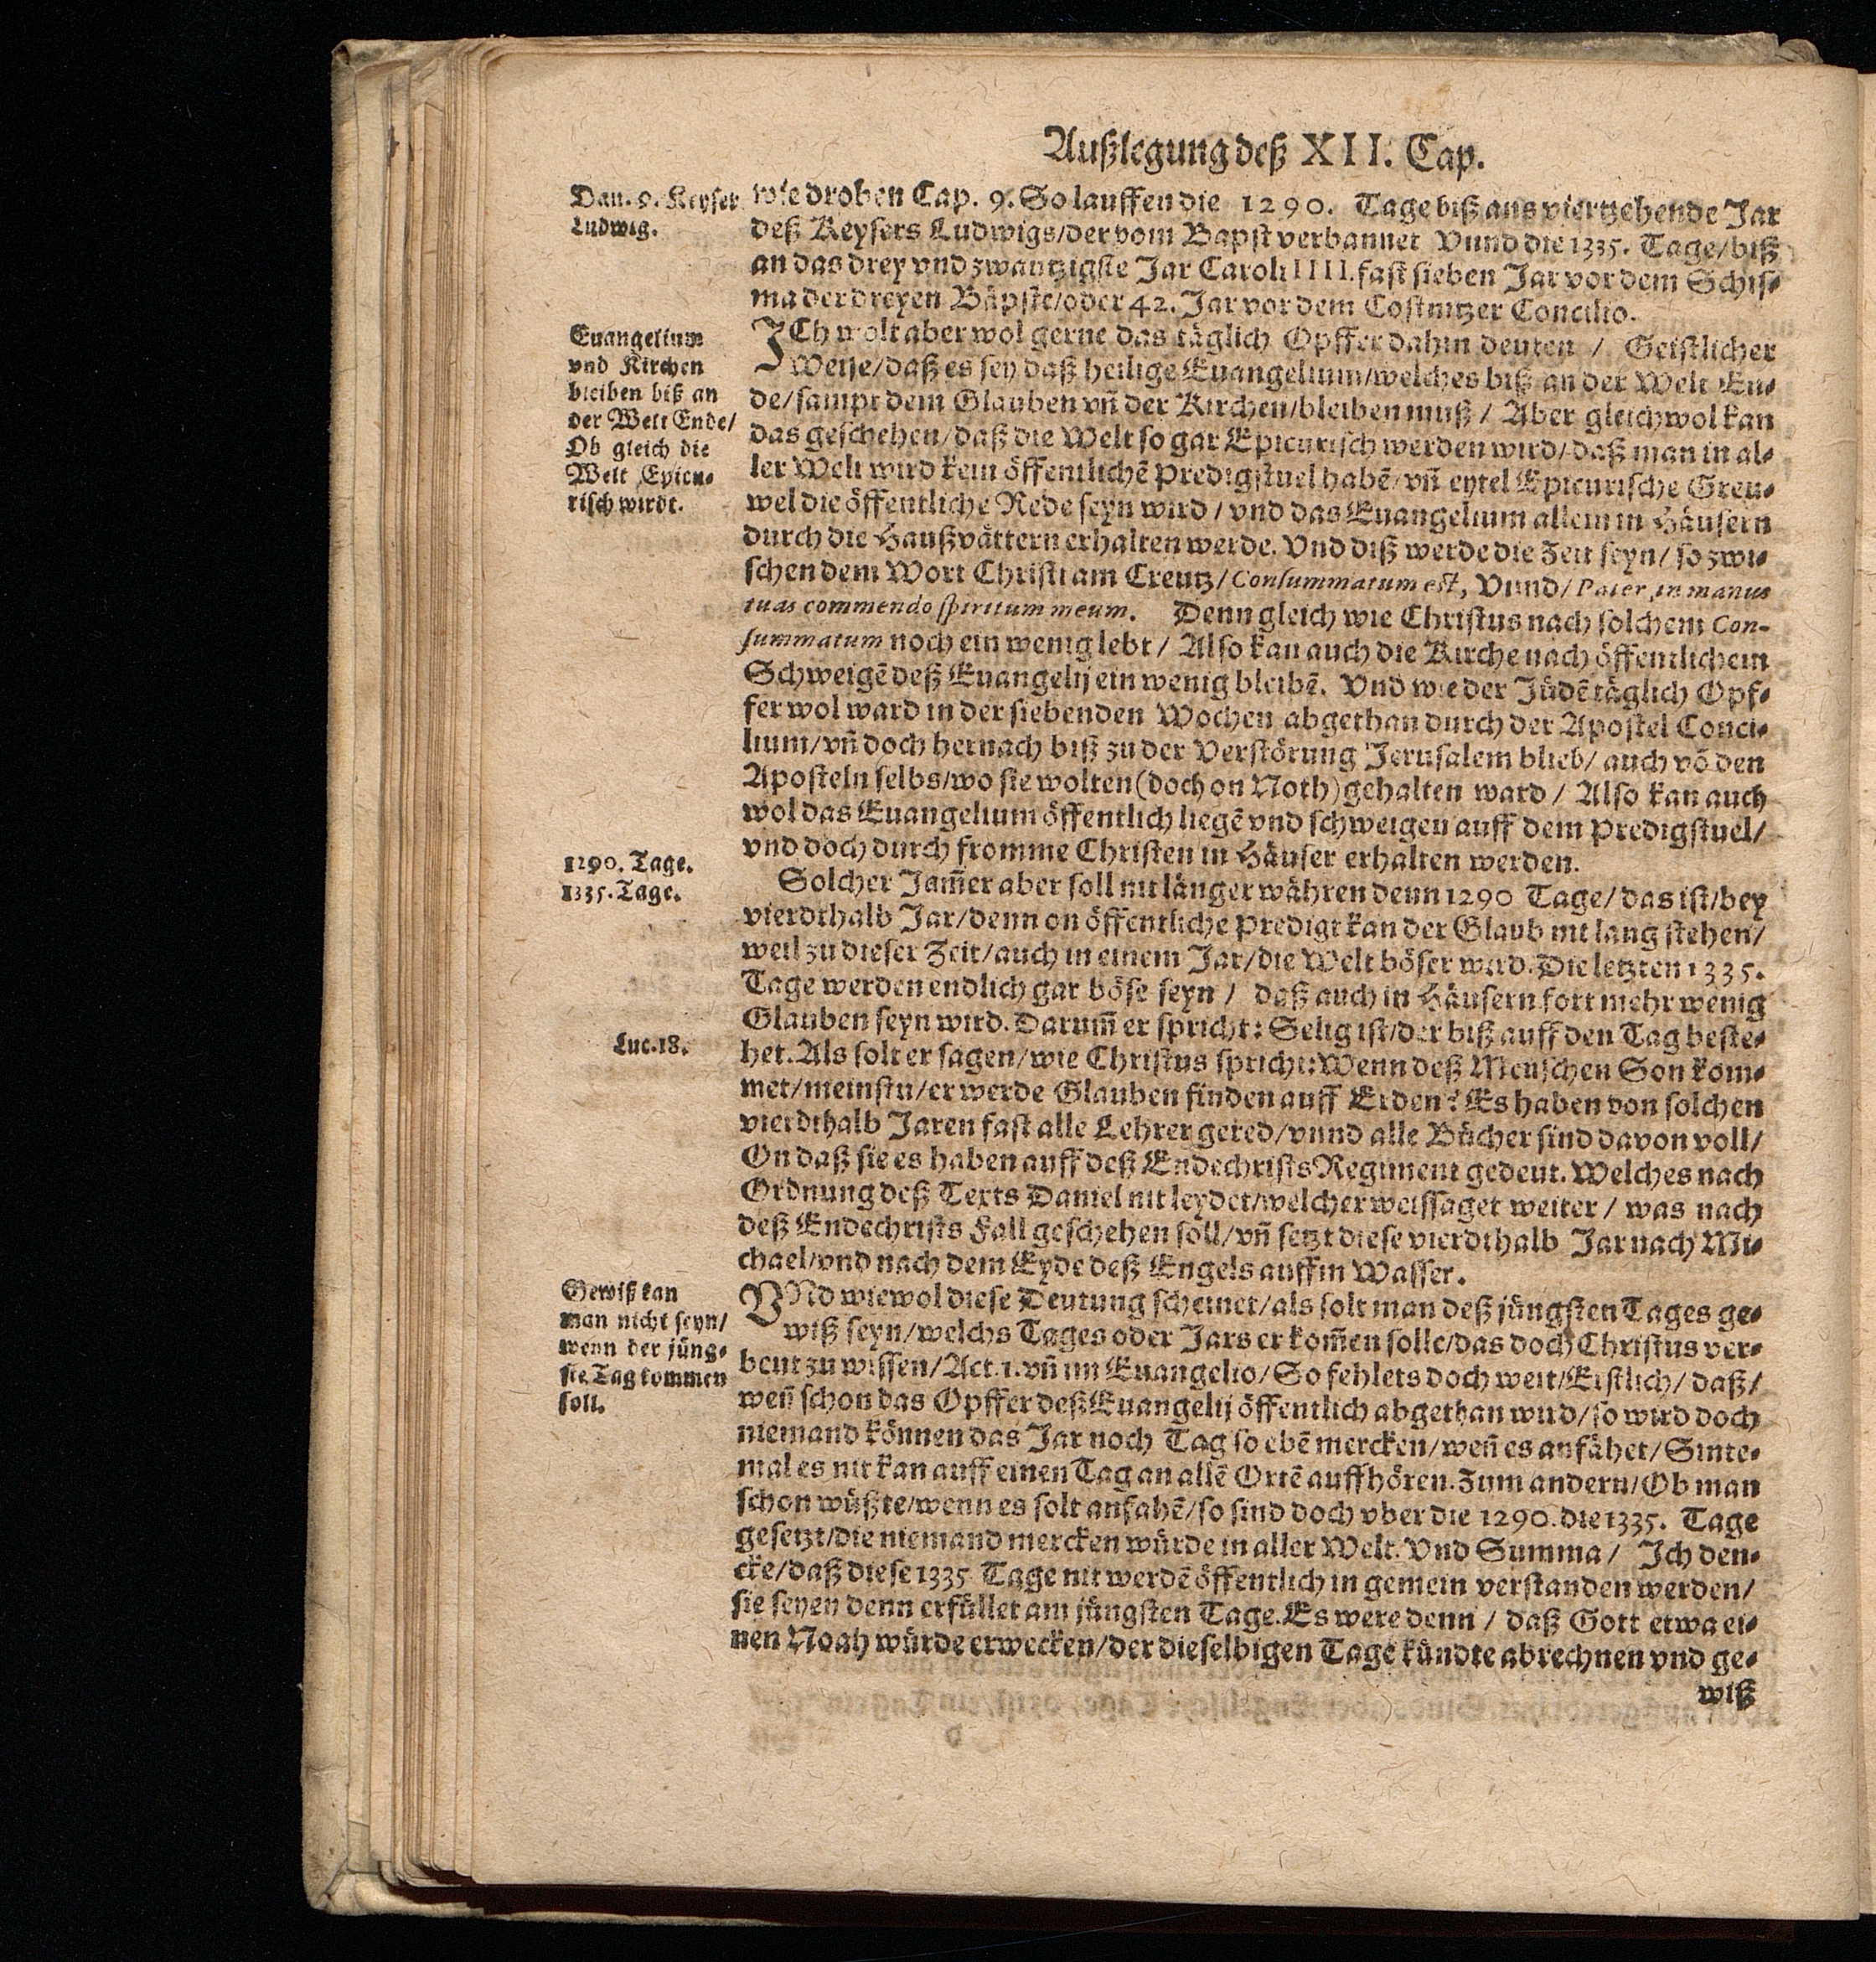 Außlegung deß XII. Cap.
Dan. 9. Keyser
Ludwig.
wie droben Cap. 9. So lauffen die 1290. Tage biß ans viertzehende Jar
deß Keysers Ludwigs/der vom Bapst verbannet Vnnd die 1335. Tage/biß
an das drey vnd zwantzigste Jar Caroli IIII. fast sieben Jar vor dem Schis-
ma der dreyen Bäpste/oder 42. Jar vor dem Costnitzer Concilio.
Euangelium
vnd Kirchen
bleiben biß an
der Welt Ende/
Ob gleich die
Welt Epicu-
risch wirdt.
ICh wolt aber wol gerne das täglich Opffer dahin deuten / Geistlicher
Weise/daß es sey daß heilige Euangelium/welches biß an der Welt En-
de/sampt dem Glauben vñ der Kirchen/bleiben muß / Aber gleichwol kan
das geschehen/daß die Welt so gar Epicurisch werden wird/daß man in al-
ler Welt wird kein öffentlichẽ Predigstuel habẽ/vñ eytel Epicurische Greu-
wel die öffentliche Rede seyn wird / vnd das Euangelium allein in Häusern
durch die Haußvättern erhalten werde. Vnd diß werde die Zeit seyn/ so zwi-
schen dem Wort Christi am Creutz/ Consummatum est, Vnnd/ Pater, in manus
tuas commendo spiritum meum. Denn gleich wie Christus nach solchem Con-
summatum noch ein wenig lebt / Also kan auch die Kirche nach öffentlichem
Schweigẽ deß Euangelij ein wenig bleibẽ. Vnd wie der Jüdẽ täglich Opf-
fer wol ward in der siebenden Wochen abgethan durch der Apostel Conci-
lium/vñ doch hernach biß zu der Verstörung Jerusalem blieb/ auch võ den
Aposteln selbs/wo sie wolten (doch on Noth) gehalten ward / Also kan auch
wol das Euangelium öffentlich liegẽ vnd schweigen auff dem Predigstuel/
vnd doch durch fromme Christen in Häuser erhalten werden.
1290. Tage.
1335. Tage.
Solcher Jam̃er aber soll nit länger währen denn 1290 Tage/ das ist/bey
vierdthalb Jar/denn on öffentliche Predigt kan der Glaub nit lang stehen/
weil zu dieser Zeit/auch in einem Jar/die Welt böser wird. Die letzten 1335.
Tage werden endlich gar böse seyn / daß auch in Häusern fort mehr wenig
Glauben seyn wird. Darum̃ er spricht: Selig ist/der biß auff den Tag beste-
Luc. 18.
het. Als solt er sagen/wie Christus spricht: Wenn deß Menschen Son kom-
met/meinstu/er werde Glauben finden auff Erden? Es haben von solchen
vierdthalb Jaren fast alle Lehrer gered/vnnd alle Bücher sind davon voll/
On daß sie es haben auff deß Endechrists Regiment gedeut. Welches nach
Ordnung deß Texts Daniel nit leydet/welcher weissaget weiter / was nach
deß Endechrists Fall geschehen söll/vñ setzt diese vierdthalb Jar nach Mi-
chael/vnd nach dem Eyde deß Engels auffm Wasser.
Gewiß kan
man nicht seyn/
wenn der jüng-
ste Tag kommen
soll.
VNd wiewol diese Deutung scheinet/als solt man deß jüngsten Tages ge-
wiß seyn/welchs Tages oder Jars er kom̃en solle/das doch Christus ver-
beut zu wissen/Act. 1. vñ im Euangelio/ So fehlets doch weit/Erstlich/ daß/
weñ schon das Opffer deß Euangelij öffentlich abgethan wird/so wird doch
niemand können das Jar noch Tag so ebẽ mercken/weñ es anfähet/Sinte-
mal es nit kan auff einen Tag an allẽ Ortẽ auffhören. Zum andern/Ob man
schon wüßte/wenn es solt anfahẽ/so sind doch vber die 1290. die 1335. Tage
gesetzt/die niemand mercken würde in aller Welt. Vnd Summa / Ich den-
cke/daß diese 1335 Tage nit werdẽ öffentlich in gemein verstanden werden/
sie seyen denn erfüllet am jüngsten Tage. Es were denn / daß Gott etwa ei-
nen Noah würde erwecken/der dieselbigen Tage kündte abrechnen vnd ge-
wiß